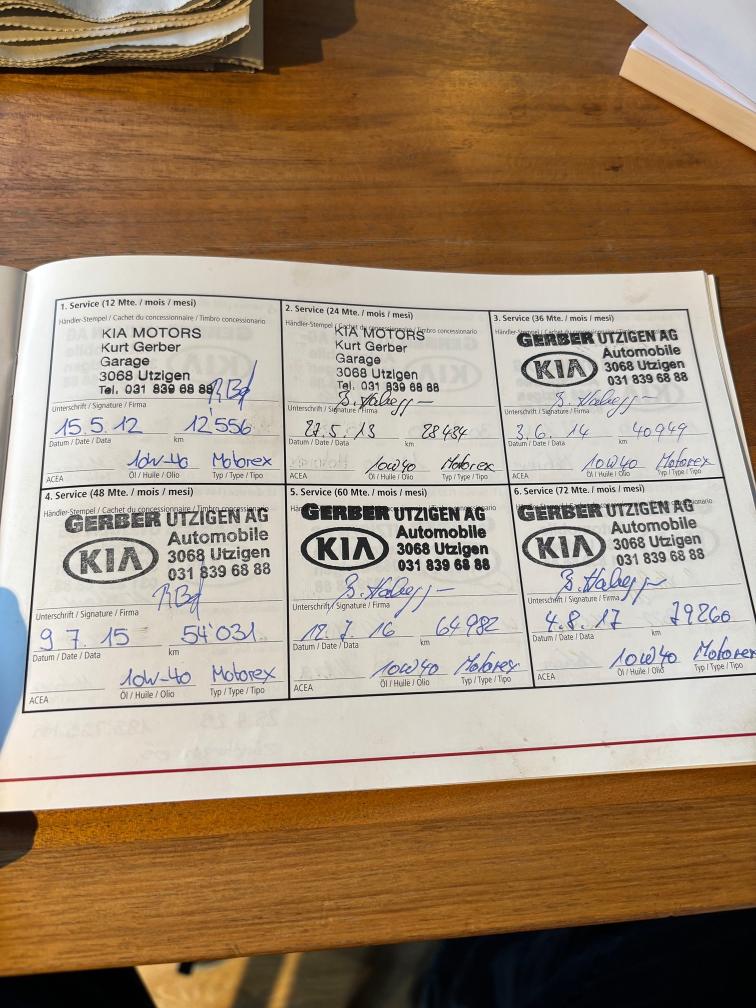 1. Service (12 Mte. / mois / mesi)
Händler-Stempel / Cachet du concessionnaire / Timbro concessionario
KIA MOTORS
Kurt Gerber
Garage
3068 Utzigen
Tel. 031 839 68 88
Unterschrift / Signature / Firma
15.5.12 12'556
Datum / Date / Data km
10W-40 Motorex
ACEA Öl / Huile / Olio Typ / Type / Tipo
2. Service (24 Mte. / mois / mesi)
Händler-Stempel / Cachet du concessionnaire / Timbro concessionario
KIA MOTORS
Kurt Gerber
Garage
3068 Utzigen
Tel. 031 839 68 88
Unterschrift / Signature / Firma
5. 13 28484
Datum / Date / Data km
10W40 Motorex
ACEA Öl / Huile / Olio Typ / Type / Tipo
3. Service (36 Mte. / mois / mesi)
GERBER UTZIGEN AG
KIA
Automobile
3068 Utzigen
031 839 68 88
Unterschrift / Signature / Firma
3.6.14 40949
Datum / Date / Data km
10W40 Motorex
ACEA Öl / Huile / Olio Typ / Type / Tipo
4. Service (48 Mte. / mois / mesi)
Händler-Stempel / Cachet du concessionnaire / Timbro concessionario
GERBER UTZIGEN AG
KIA
Automobile
3068 Utzigen
031 839 68 88
Unterschrift / Signature / Firma
9 7. 15 54'031
Datum / Date / Data km
10W-40 Motorex
ACEA Öl / Huile / Olio Typ / Type / Tipo
5. Service (60 Mte. / mois / mesi)
GERBER UTZIGEN AG
KIA
Automobile
3068 Utzigen
031 839 68 88
Unterschrift / Signature / Firma
7. 16 64982
Datum / Date / Data km
10W40 Motorex
ACEA Öl / Huile / Olio Typ / Type / Tipo
6. Service (72 Mte. / mois / mesi)
GERBER UTZIGEN AG
KIA
Automobile
3068 Utzigen
031 839 68 88
Unterschrift / Signature / Firma
4.8.17 79260
Datum / Date / Data km
10W40 Motorex
ACEA Öl / Huile / Olio Typ / Type / Tipo